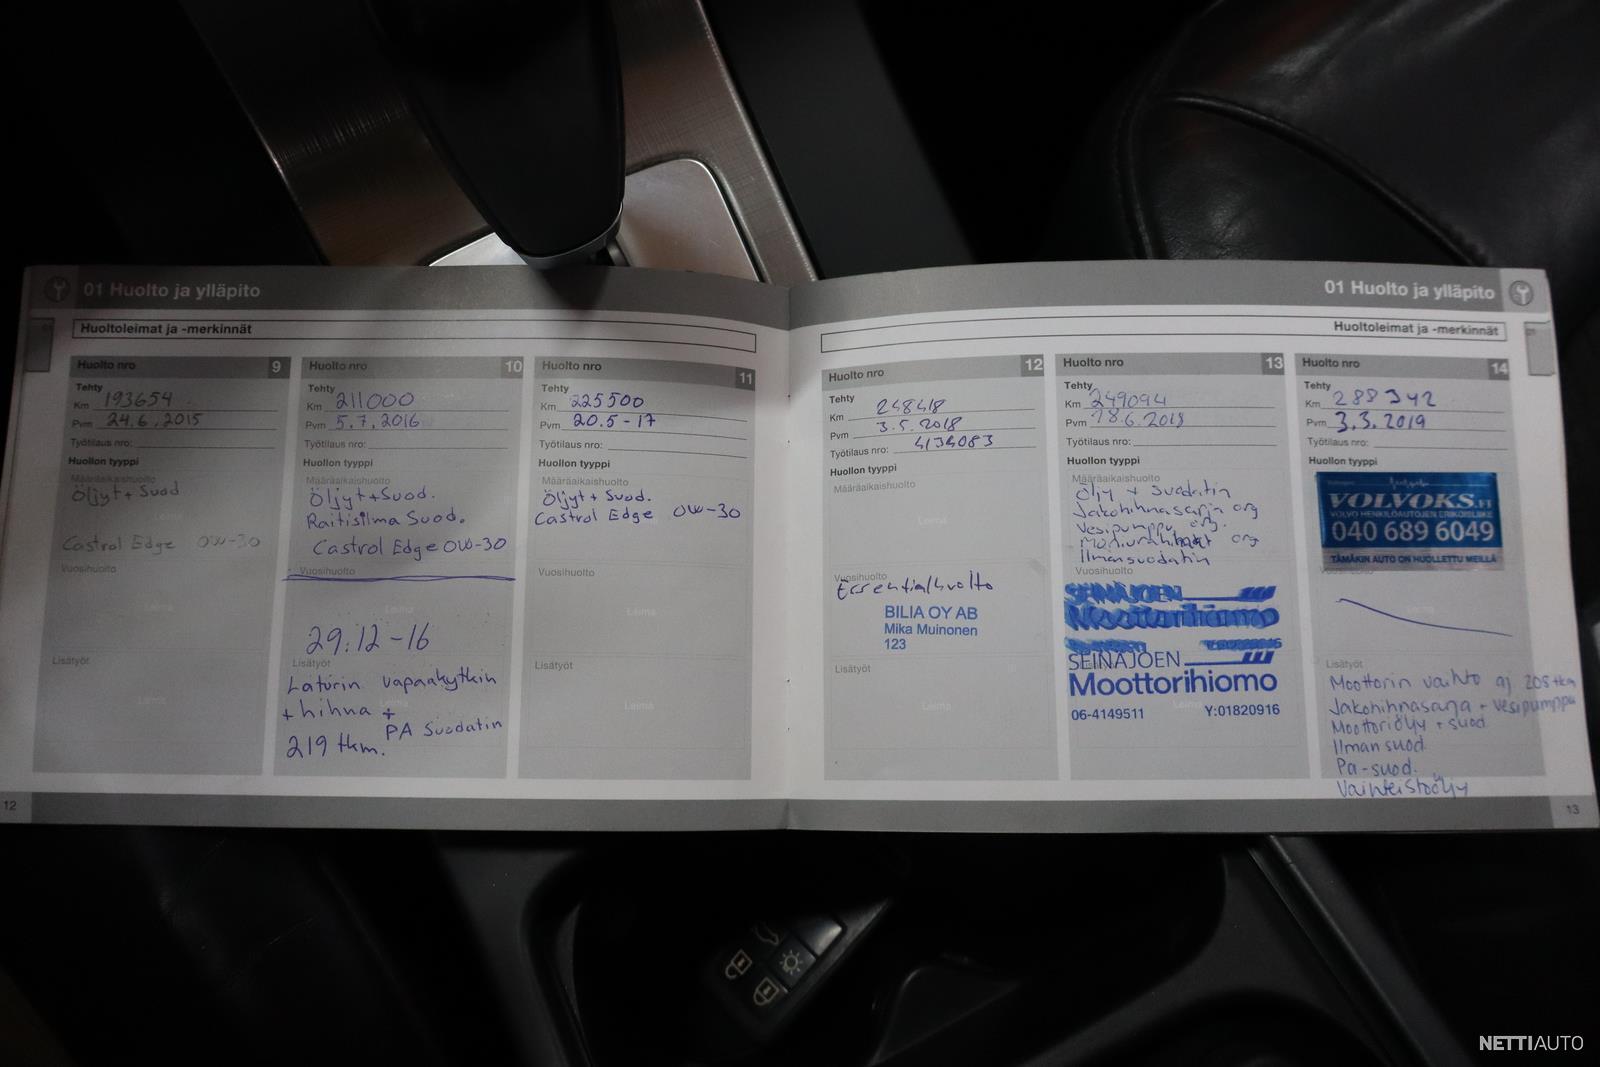 01 Huolto ja ylläpito
Huoltoleimat ja -merkinnät
Huolto nro 9
Tehty
Km 193654
Pvm 24.6.2015
Työtilaus nro:
Huollon tyyppi
Määräaikaishuolto
Öljyt + Suod
Leima
Castrol Edge 0W-30
Vuosihuolto
Leima
Lisätyöt
Leima
12
Huolto nro 10
Tehty
Km 211000
Pvm 5.7.2016
Työtilaus nro:
Huollon tyyppi
Määräaikaishuolto
Öljyt + Suod.
Raitisilma Suod.
Castrol Edge 0W-30
Vuosihuolto
Leima
29.12-16
Lisätyöt
Laturin vapaakytkin
+ hihna +
Leima
PA Suodatin
219 tkm.
Huolto nro 11
Tehty
Km 225500
Pvm 20.5-17
Työtilaus nro:
Huollon tyyppi
Määräaikaishuolto
Öljyt + Suod.
Castrol Edge 0W-30
Vuosihuolto
Leima
Lisätyöt
Leima
01 Huolto ja ylläpito
Huoltoleimat ja -merkinnät
Huolto nro 12
Tehty
Km 248418
Pvm 3.5.2018
Työtilaus nro: 4134083
Huollon tyyppi
Määräaikaishuolto
Leima
Vuosihuolto
Essentialhuolto
BILIA OY AB
Mika Muinonen
123
Lisätyöt
Leima
Huolto nro 13
Tehty
Km 249094
Pvm 28.6.2018
Työtilaus nro:
Huollon tyyppi
Määräaikaishuolto
Öljy + suodatin
Jakohihnasarja org
Vesipumppu org.
org
Ilmansuodatin
Vuosihuolto
SEINÄJOEN
Moottorihiomo
SEINÄJOEN
Moottorihiomo
Leima
06-4149511 Y:01820916
Huolto nro 14
Tehty
Km 288342
Pvm 3.3.2019
Työtilaus nro:
Huollon tyyppi
VOLVOKS.FI
VOLVO HENKILÖAUTOJEN ERIKOISLIIKE
040 689 6049
TÄMÄKIN AUTO ON HUOLLETTU MEILLÄ
Leima
Lisätyöt
Moottorin vaihto aj. 205 tkm
Jakohihnasarja + vesipumppu
Moottoriöljy + suod
Ilman suod.
Pa-suod.
Vaihteistoöljy
13
NETTIAUTO